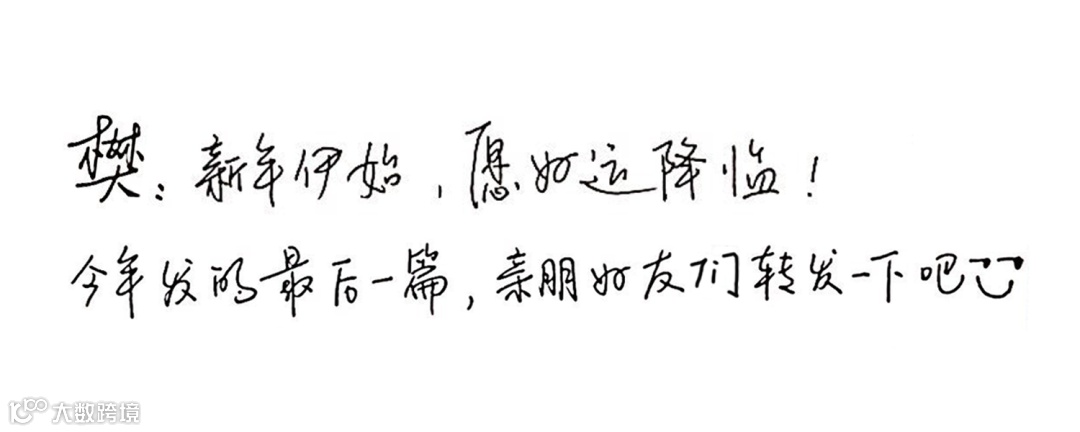 樊：新年伊始，愿好运降临！
今年发的最后一篇，亲朋好友们转发一下吧
大数跨境